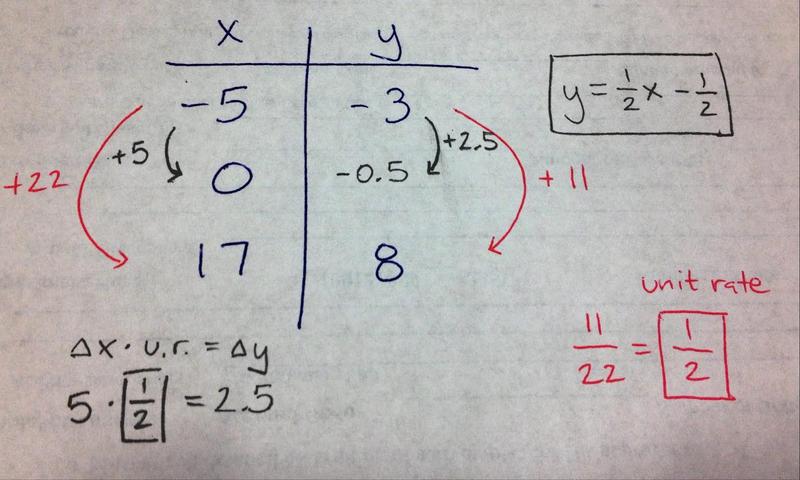 x y
-5 -3
+5 +2.5
0 -0.5
+22 +11
17 8
y = 1/2 x - 1/2
unit rate
11/22 = 1/2
Δx · u.r. = Δy
5 · 1/2 = 2.5